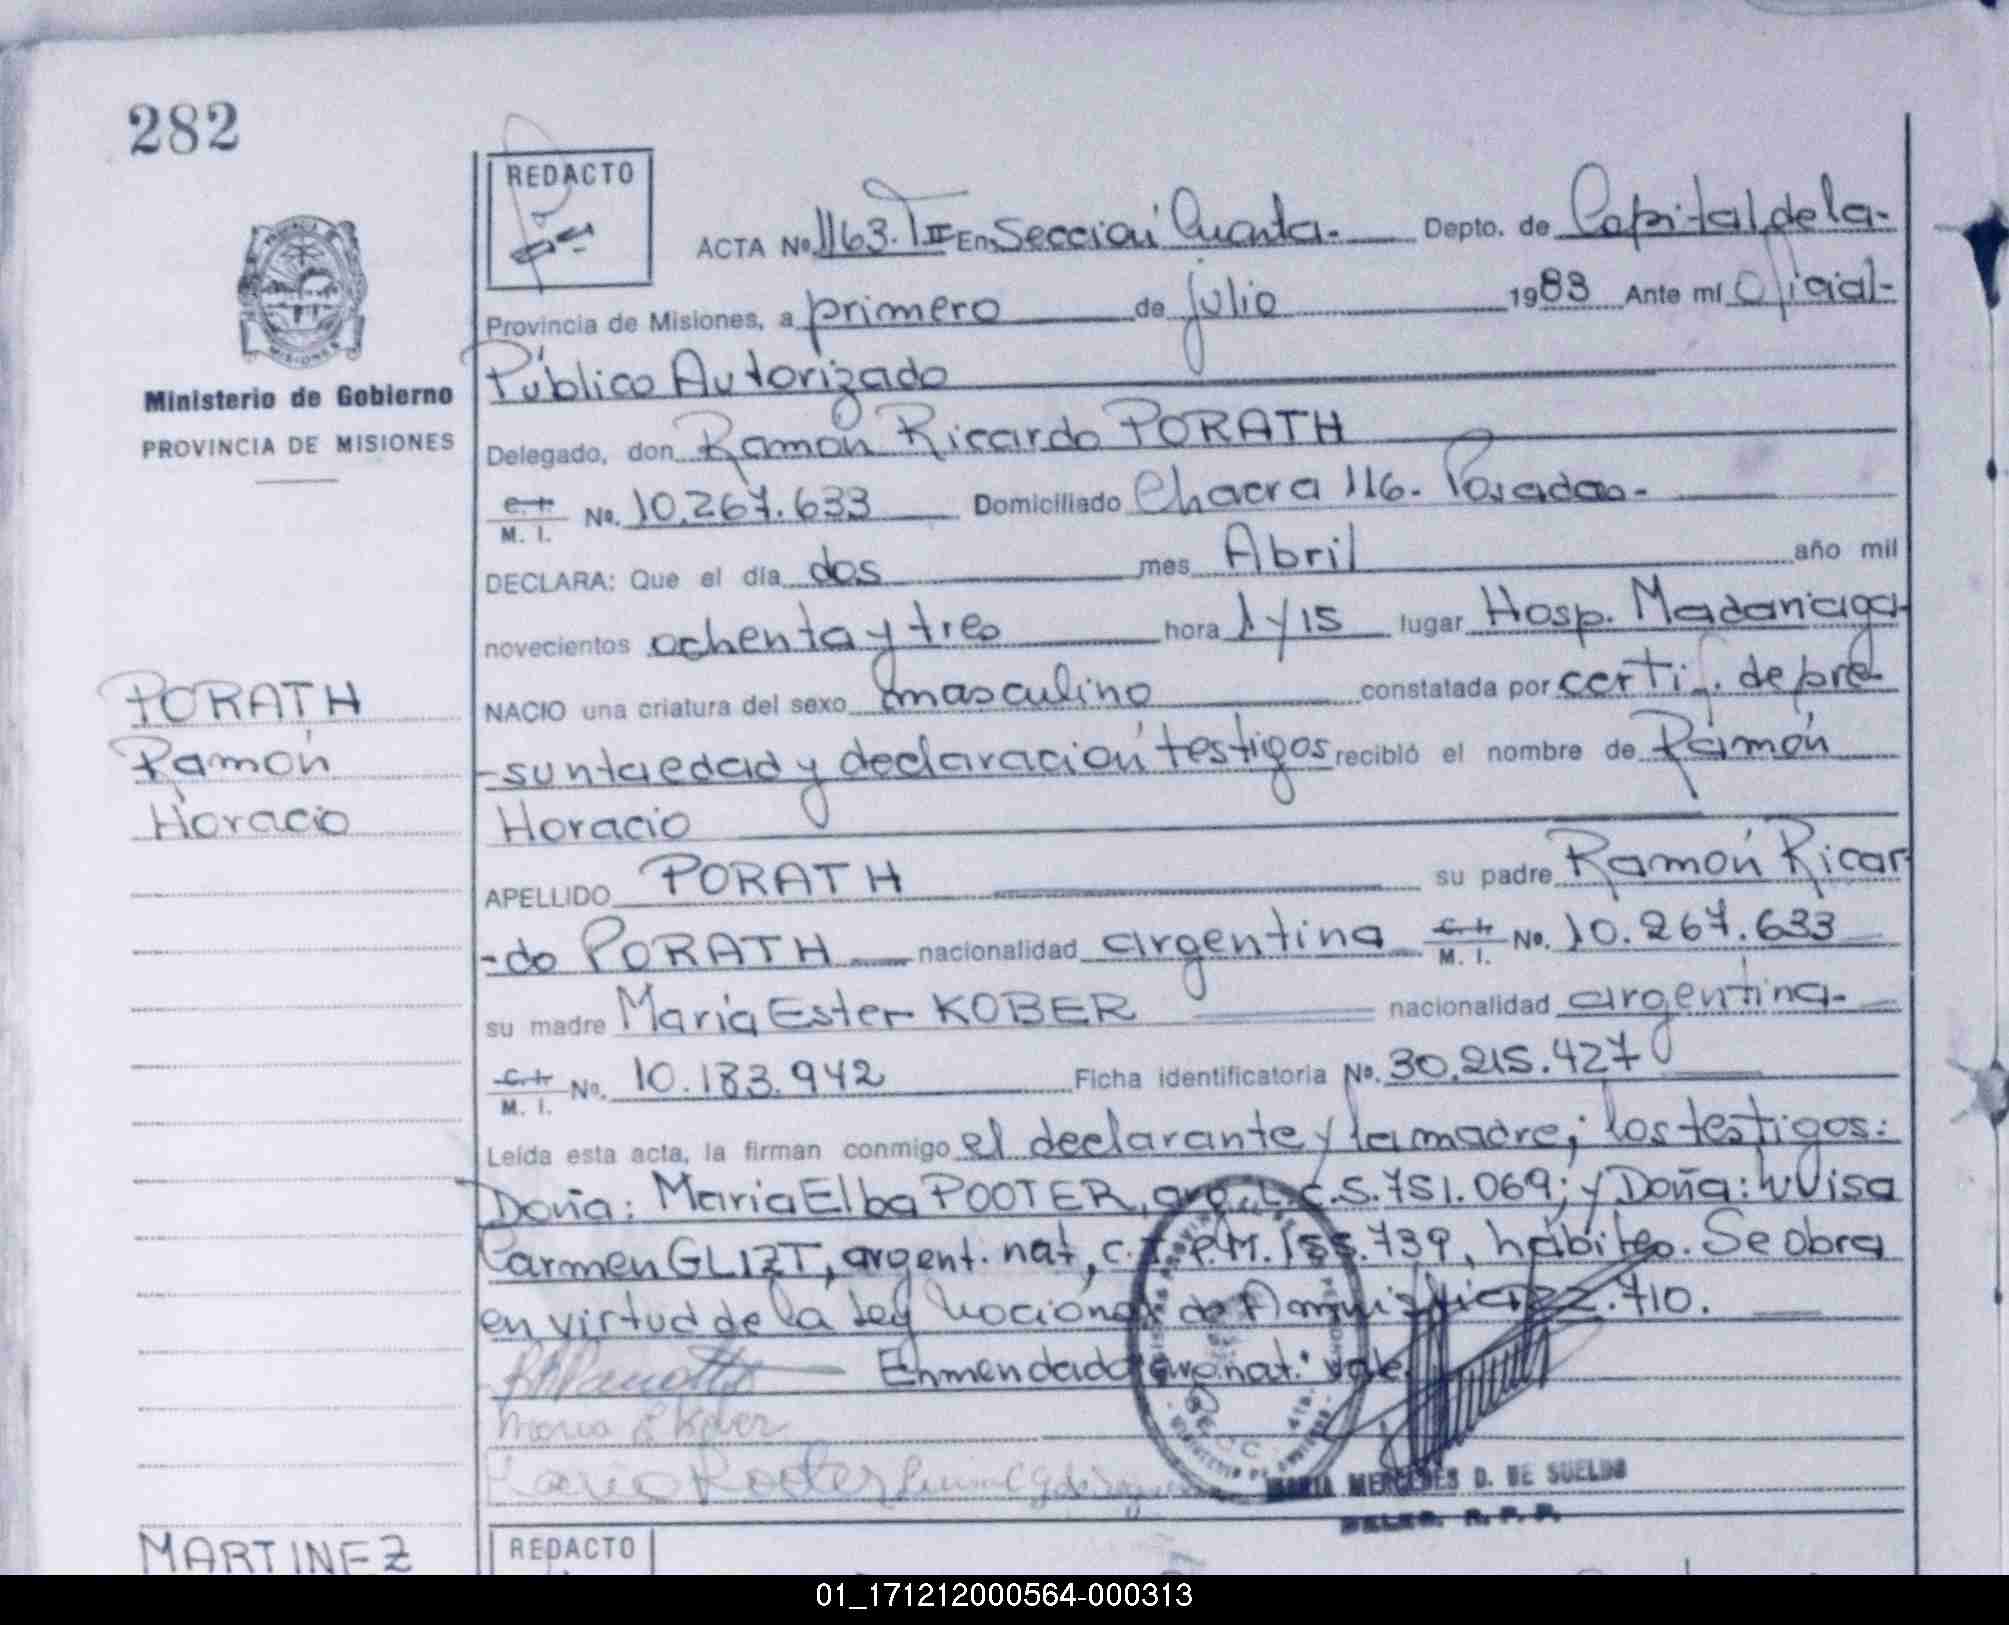 282
REDACTO
ACTA No. 1163. TII En Sección Cuarta. Depto. de Capital de la
Provincia de Misiones, a primero de julio 1983 Ante mí Oficial
Público Autorizado
Ministerio de Gobierno
PROVINCIA DE MISIONES
Delegado, don Ramón Ricardo PORATH
C.I. M. I. No. 10.267.633 Domiciliado Chacra 116. Posadas
DECLARA: Que el día dos mes Abril año mil
novecientos ochenta y tres hora 1 y 15 lugar Hosp. Madariaga
NACIO una criatura del sexo masculino constatada por certif. de pre
-sunta edad y declaración testigos recibió el nombre de Ramón
Horacio
PORATH
Ramón
Horacio
APELLIDO PORATH su padre Ramón Ricar
-do PORATH nacionalidad argentina C.I. M. I. No. 10.267.633
su madre María Ester KOBER nacionalidad argentina
C.I. M. I. No. 10.183.942 Ficha identificatoria No. 30.215.427
Leída esta acta, la firman conmigo el declarante y la madre; los testigos:
Doña: María Elba POOTER, arg. L.C. 5.751.069; y Doña: Luisa
Carmen GLIZT, argent. nat, C.I. P.M. 155.739, hábiles. Se obra
en virtud de la Ley Nacional de Amnistía 22.710.
Enmendado nat. vale
Maria E Kober
MARIA MERCEDES D. DE SUELDO
DELEG. R. P. P.
MARTINEZ
REDACTO
01_171212000564-000313